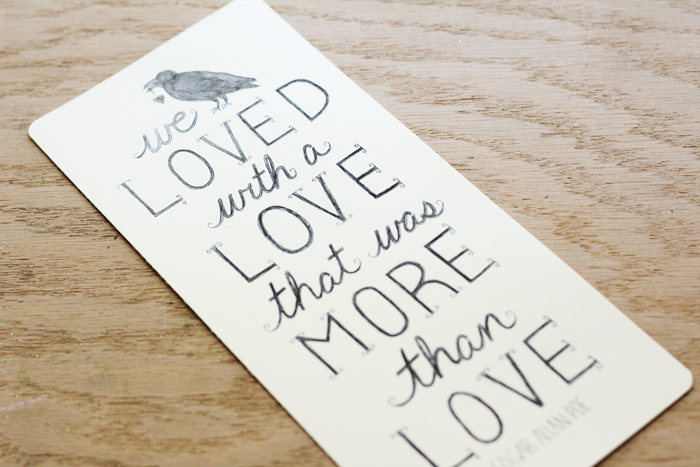 we
LOVED
with a
LOVE
that was
MORE
than
LOVE
EDGAR ALLAN POE